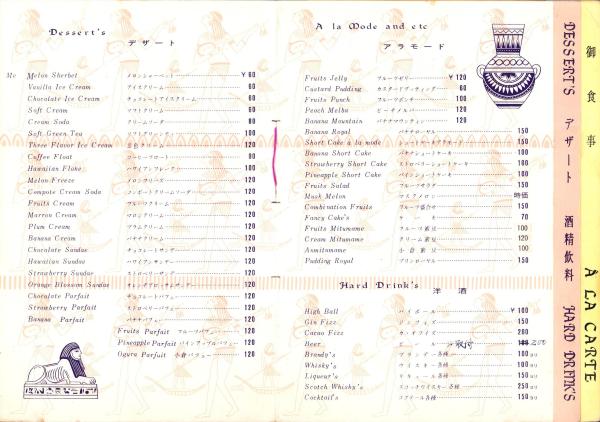 Dessert's
デザート
Mc Melon Sherbet メロンシャーベット ¥ 60
Vanilla Ice Cream アイスクリーム 60
Chocolate Ice Cream チョコレートアイスクリーム 60
Soft Cream ソフトクリーム 60
Cream Soda クリームソーダ 80
Soft Green Tea ソフトグリンティ 100
Three Flavor Ice Cream 三色クリーム 120
Coffee Float コーヒーフロート 80
Hawaiian Floke ハワイアンフレーク 100
Melon Freeze メロンフリーズ 100
Compote Cream Soda コンポートクリームソーダー 120
Fruits Cream フルーツクリーム 120
Marron Cream マロンクリーム 120
Plum Cream プラムクリーム 120
Banana Cream バナナクリーム 120
Chocolate Sundae チョコレートサンデー 120
Hawaiian Sundae ハワイアンサンデー 120
Strawberry Sundae ストロベリーサンデー 120
Orange Blossom Sundae オレンヂブロッサムサンデー 120
Chocolate Parfait チョコレートパフェー 120
Strawberry Parfait ストロベリーパフェー 120
Banana Parfait バナナパフェー 120
Fruits Parfait フルーツパフェー 120
Pineapple Parfait パインアップルパフェー 120
Ogura Parfait 小倉パフェー 120
A la Mode and etc
アラモード
Fruits Jelly フルーツゼリー ¥ 120
Custard Pudding カスタードプッディング 60
Fruits Punch フルーツポンチ 100
Peach Melba ピーチメルバ 120
Banana Mountain バナナマウンティン 120
Banana Royal バナナローヤル 150
Short Cake à la mode ショートケーキアラモード 150
Banana Short Cake バナナショートケーキ 100
Strawberry Short Cake ストロベリーショートケーキ 100
Pineapple Short Cake パインショートケーキ 100
Fruits Salad フルーツサラダ 150
Musk Melon マスクメロン 時価
Combination Fruits フルーツ盛合せ 150
Fancy Cake's ケーキ 70
Fruits Mitumame フルーツ蜜豆 100
Cream Mitumame クリーム蜜豆 120
Anmitumame 小倉蜜豆 100
Pudding Royal プリンローヤル 150
Hard Drink's
洋酒
High Ball ハイボール ¥ 100
Gin Fizz ジンフイズ 150
Cacao Fizz カカオフイズ 200
Beer ビール 200
Brandy's ブランデー各種 100ヨリ
Whisky's ウイスキー各種 100ヨリ
Liqueur's リキュール各種 150ヨリ
Scotch Whisky's スコッチウイスキー各種 250ヨリ
Cocktail's コクテール各種 150ヨリ
DESSERT'S デザート 酒精飲料 HARD DRINK'S
御食事 À LA CARTE